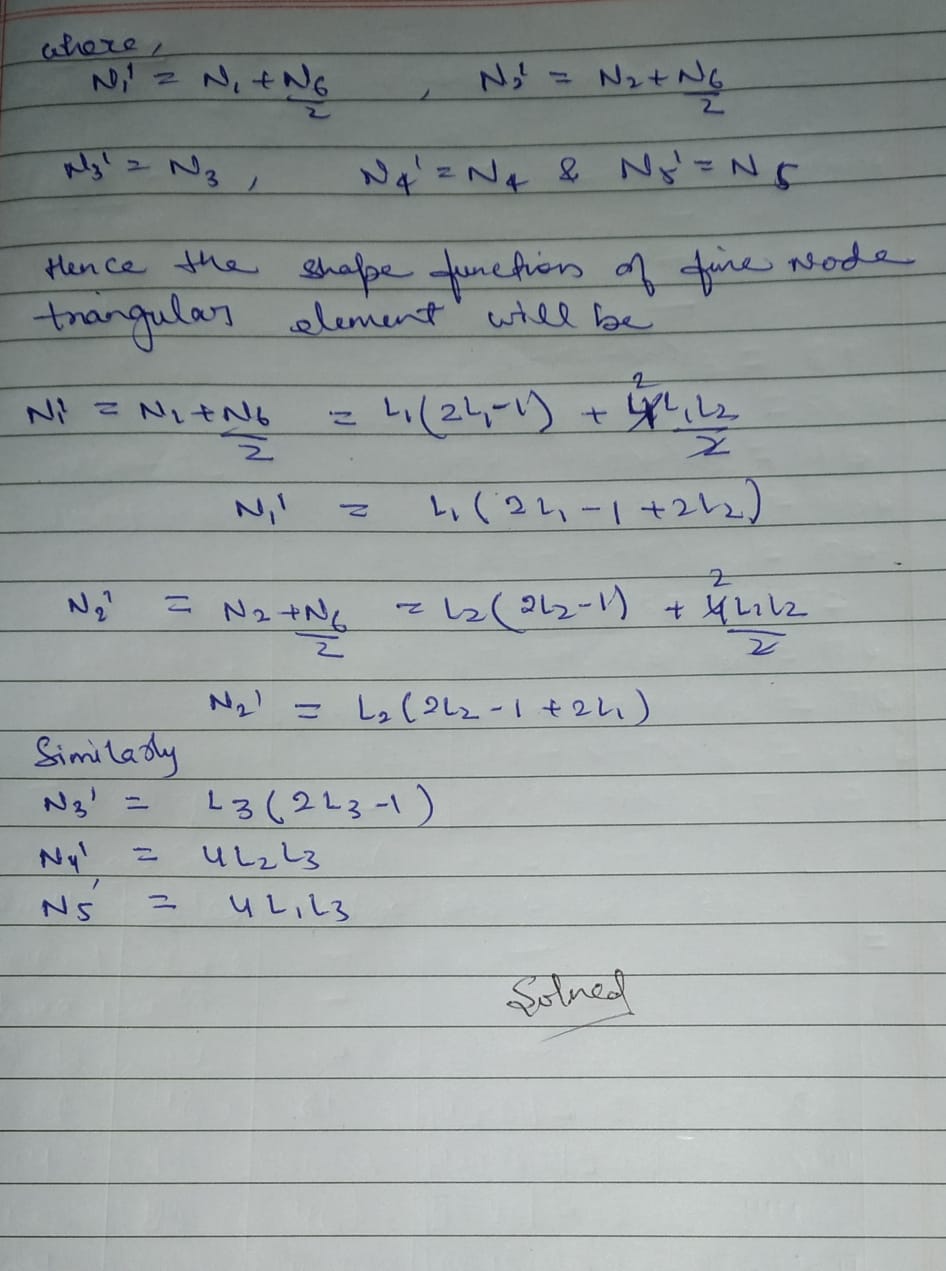 where,
N₁' = N₁ + N₆/2 , N₂' = N₂ + N₆/2
N₃' = N₃ , N₄' = N₄ & N₅' = N₅
Hence the shape function of five node
triangular element will be
N₁' = N₁ + N₆/2 = L₁(2L₁-1) + 4L₁L₂/2
N₁' = L₁(2L₁-1+2L₂)
N₂' = N₂ + N₆/2 = L₂(2L₂-1) + 4L₁L₂/2
N₂' = L₂(2L₂-1+2L₁)
Similarly
N₃' = L₃(2L₃-1)
N₄' = 4L₂L₃
N₅' = 4L₁L₃
Solved